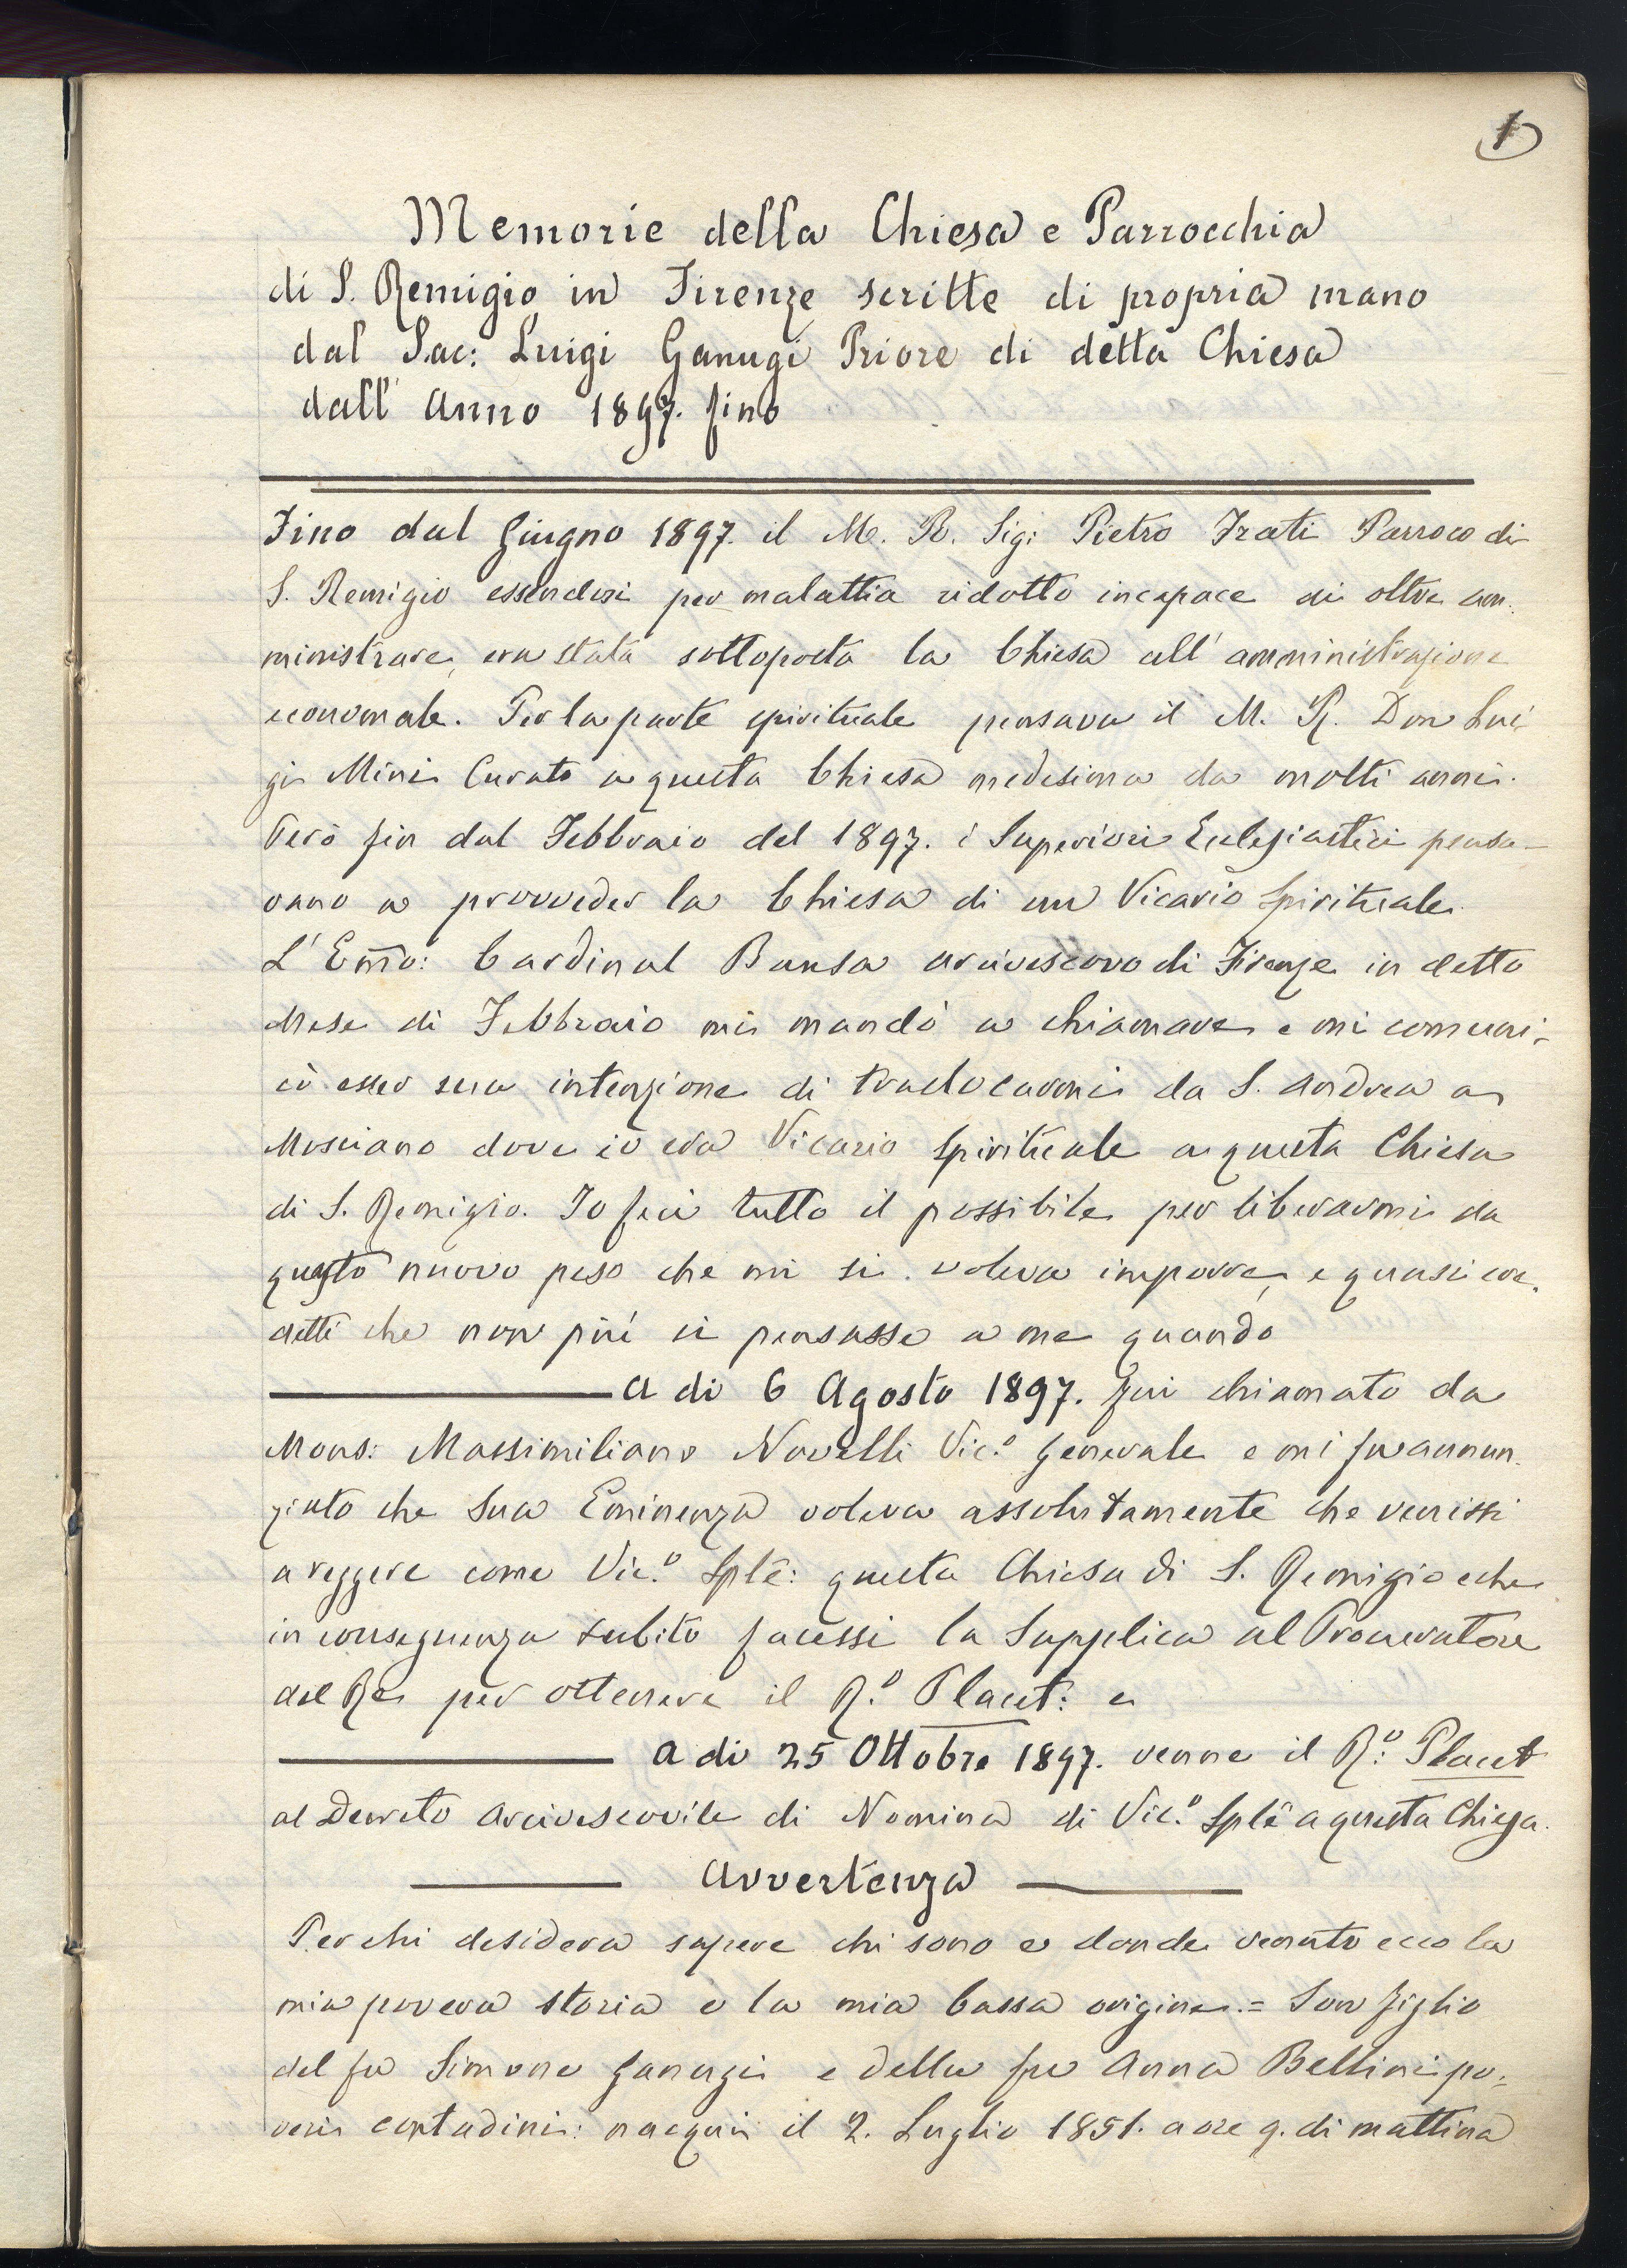 1
Memorie della Chiesa e Parrocchia
di S. Remigio in Firenze scritte di propria mano
dal Sac: Luigi Ganugi Priore di detta Chiesa
dall' Anno 1897. fino
Fino dal Giugno 1897. il M. R. Sig: Pietro Frati Parroco di
S. Remigio essendosi per malattia ridotto incapace di oltre am-
ministrare, era stata sottoposta la Chiesa all' amministrazione
economale. Per la parte spirituale pensava il M. R. Don Lui-
gi Mini Curato a questa Chiesa medesima da molti anni.
Però fin dal Febbraio del 1897. i Superiori Ecclesiastici pensa-
vano a provveder la Chiesa di un Vicario Spirituale.
L' Emo: Cardinal Bausa arcivescovo di Firenze in detto
Mese di Febbraio mi mandò a chiamare e mi comuni-
cò esser sua intenzione di traslocarmi da S. Andrea a
Mosciano dove io era Vicario Spirituale a questa Chiesa
di S. Remigio. Io feci tutto il possibile per liberarmi da
questo nuovo peso che mi si voleva imporre, e quasi cre-
detti che non più si pensasse a me quando
a di 6 Agosto 1897. fui chiamato da
Mons: Massimiliano Novelli Vic.o Generale e mi fu annun-
ziato che Sua Eminenza voleva assolutamente che venissi
a reggere come Vic.o Splê: questa Chiesa di S. Remigio e che
in conseguenza subito facessi la Supplica al Procuratore
del Re per ottenere il R.o Placet: e
a di 25 Ottobre 1897. venne il R.o: Placet
al Decreto Arcivescovile di Nomina di Vic.o Splê a questa Chiesa.
Avvertenza
Per chi desidera sapere chi sono e donde venuto ecco la
mia povera storia e la mia bassa origine.= Son figlio
del fu Simone Ganugi e della fu Anna Bellini po-
veri contadini: nacqui il 2. Luglio 1851. a ore 9. di mattina